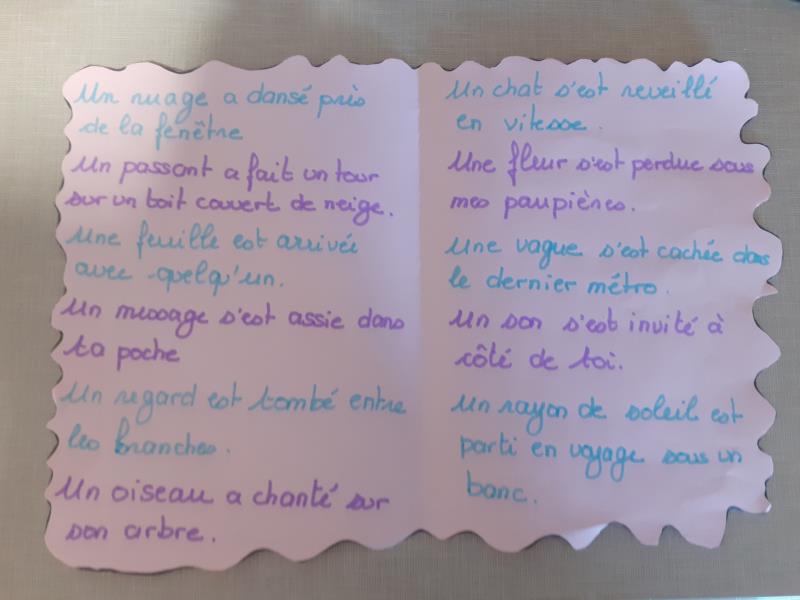 Un nuage a dansé près
de la fenêtre
Un passant a fait un tour
sur un toit couvert de neige.
Une feuille est arrivée
avec quelqu'un.
Un message s'est assie dans
ta poche
Un regard est tombé entre
les branches.
Un oiseau a chanté sur
son arbre.
Un chat s'est reveillé
en vitesse.
Une fleur s'est perdue sous
mes paupières.
Une vague s'est cachée dans
le dernier métro.
Un son s'est invité à
côté de toi.
Un rayon de soleil est
parti en voyage sous un
banc.